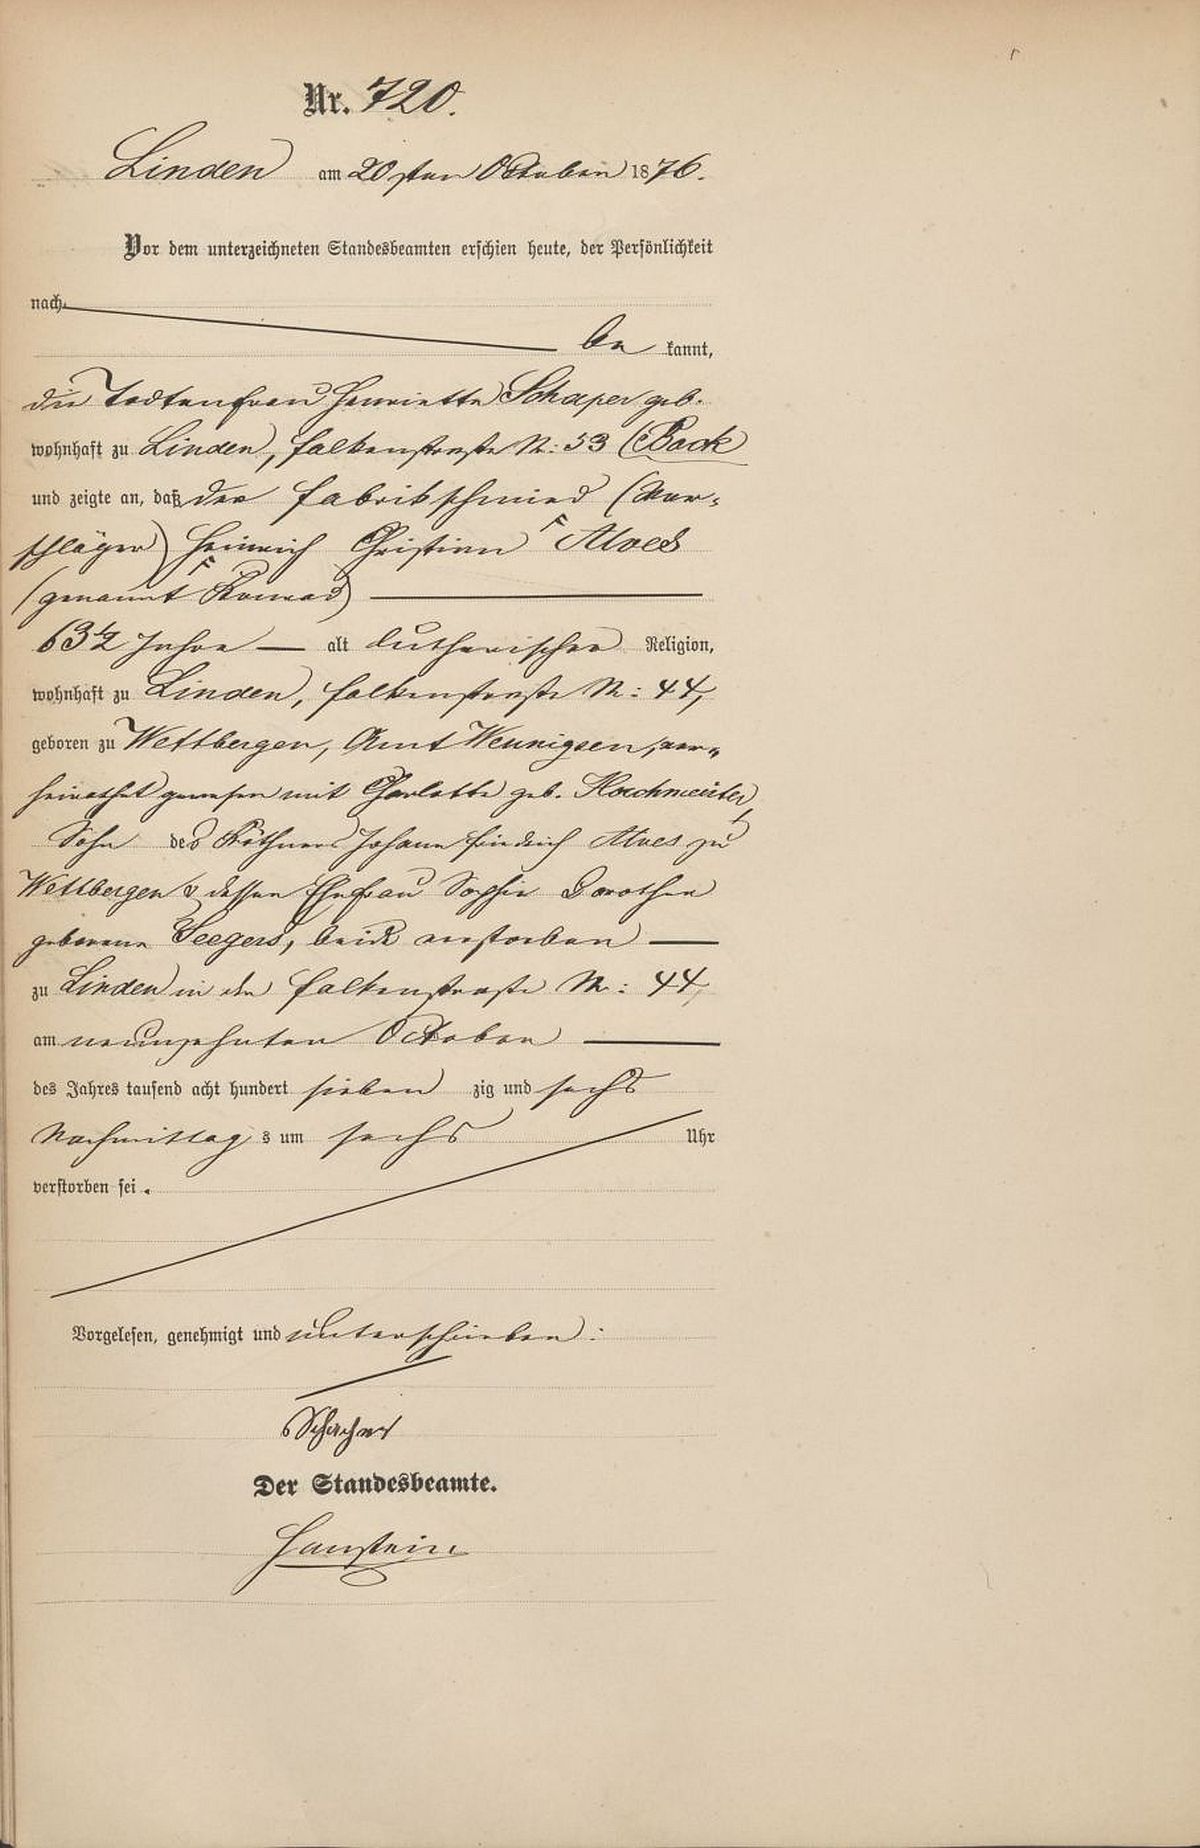 Nr. 720.
Linden am 20sten October 1876.
Vor dem unterzeichneten Standesbeamten erschien heute, der Persönlichkeit
nach
be kannt,
die Todtenfrau Henriette Schaper geb.
wohnhaft zu Linden, Falkenstraße Nr: 53 (Bock
und zeigte an, daß der Fabrikschmied (Vor-
schläger) Heinrich Christian Alves
(genannt Konrad)
63 1/2 Jahre alt lutherischer Religion,
wohnhaft zu Linden, Falkenstraße Nr: 44,
geboren zu Wettbergen, Amt Wennigsen, ver-
heirathet gewesen mit Charlotte geb. Hochmeister,
Sohn des Köthners Johann Friedrich Alves zu
Wettbergen & dessen Ehefrau Sophie Dorothee
geborene Seegers, beide verstorben
zu Linden in der Falkenstraße Nr: 44,
am neunzehnten October
des Jahres tausend acht hundert sieben zig und sechs
Nachmittag s um sechs Uhr
verstorben sei.
Vorgelesen, genehmigt und unterschrieben:
Der Standesbeamte.
Hanstein